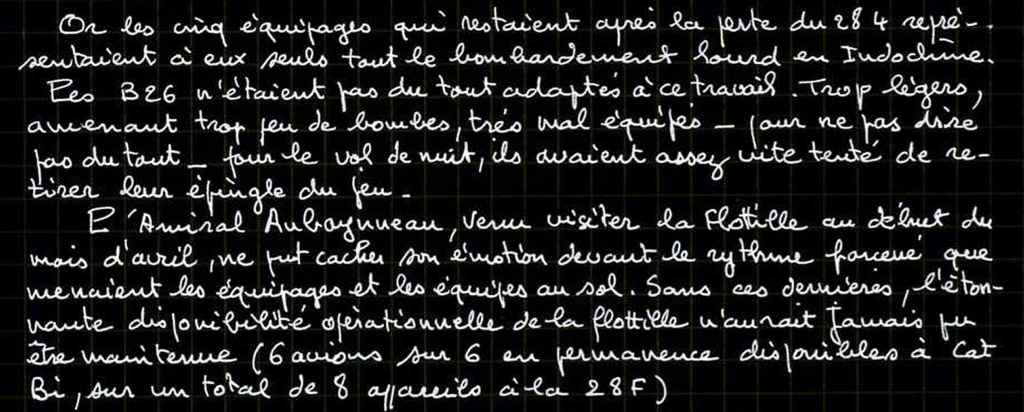 Or les cinq équipages qui restaient après la perte du 28 4 repré-
sentaient à eux seuls tout le bombardement lourd en Indochine.
Les B26 n'étaient pas du tout adaptés à ce travail. Trop légers,
amenant trop peu de bombes, très mal équipés _ pour ne pas dire
pas du tout _ pour le vol de nuit, ils avaient assez vite tenté de re-
tirer leur épingle du jeu.
L'Amiral Auboynneau, venu visiter la Flottille au début du
mois d'avril, ne put cacher son émotion devant le rythme forcené que
menaient les équipages et les équipes au sol. Sans ces dernières, l'éton-
nante disponibilité opérationnelle de la flottille n'aurait jamais pu
être maintenue (6 avions sur 6 en permanence disponibles à Cat
Bi, sur un total de 8 appareils à la 28F)